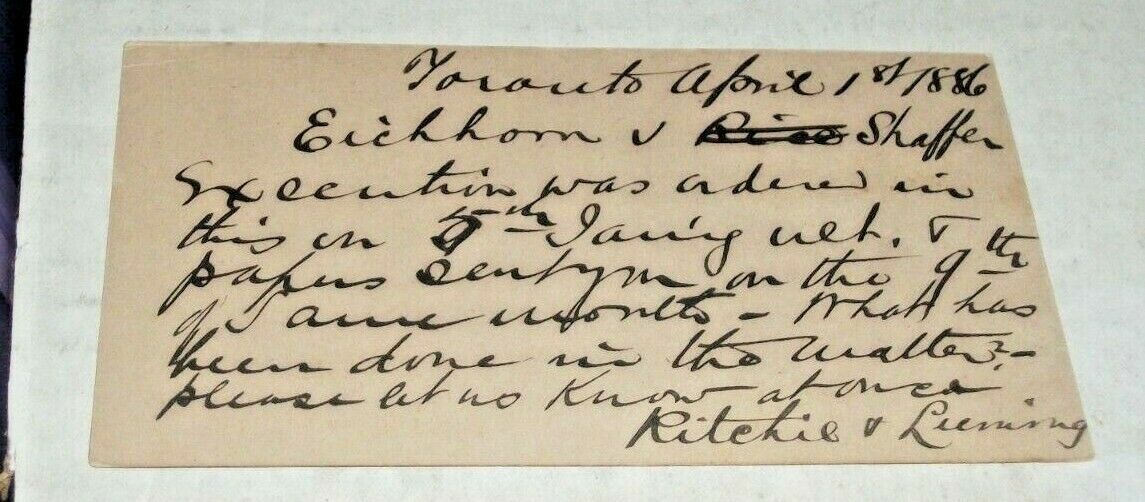 Toronto April 1st 1886
Eichhorn v Shaffer
Execution was ordered in
this on 5th Jan'y &
papers sent you on the 9th
of same month - What has
been done in the matter? -
please let us know at once
Ritchie &